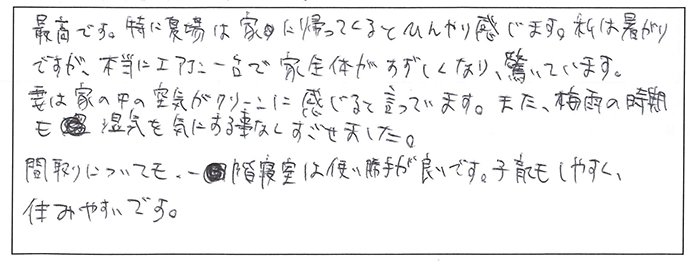 最高です。特に夏場は家に帰ってくるとひんやり感じます。私は暑がり
ですが、本当にエアコン一台で家全体がすずしくなり、驚いています。
妻は家の中の空気がクリーンに感じると言っています。また、梅雨の時期
も湿気を気にする事なくすごせました。
間取りについても、一階寝室は使い勝手が良いです。子育てもしやすく、
住みやすいです。